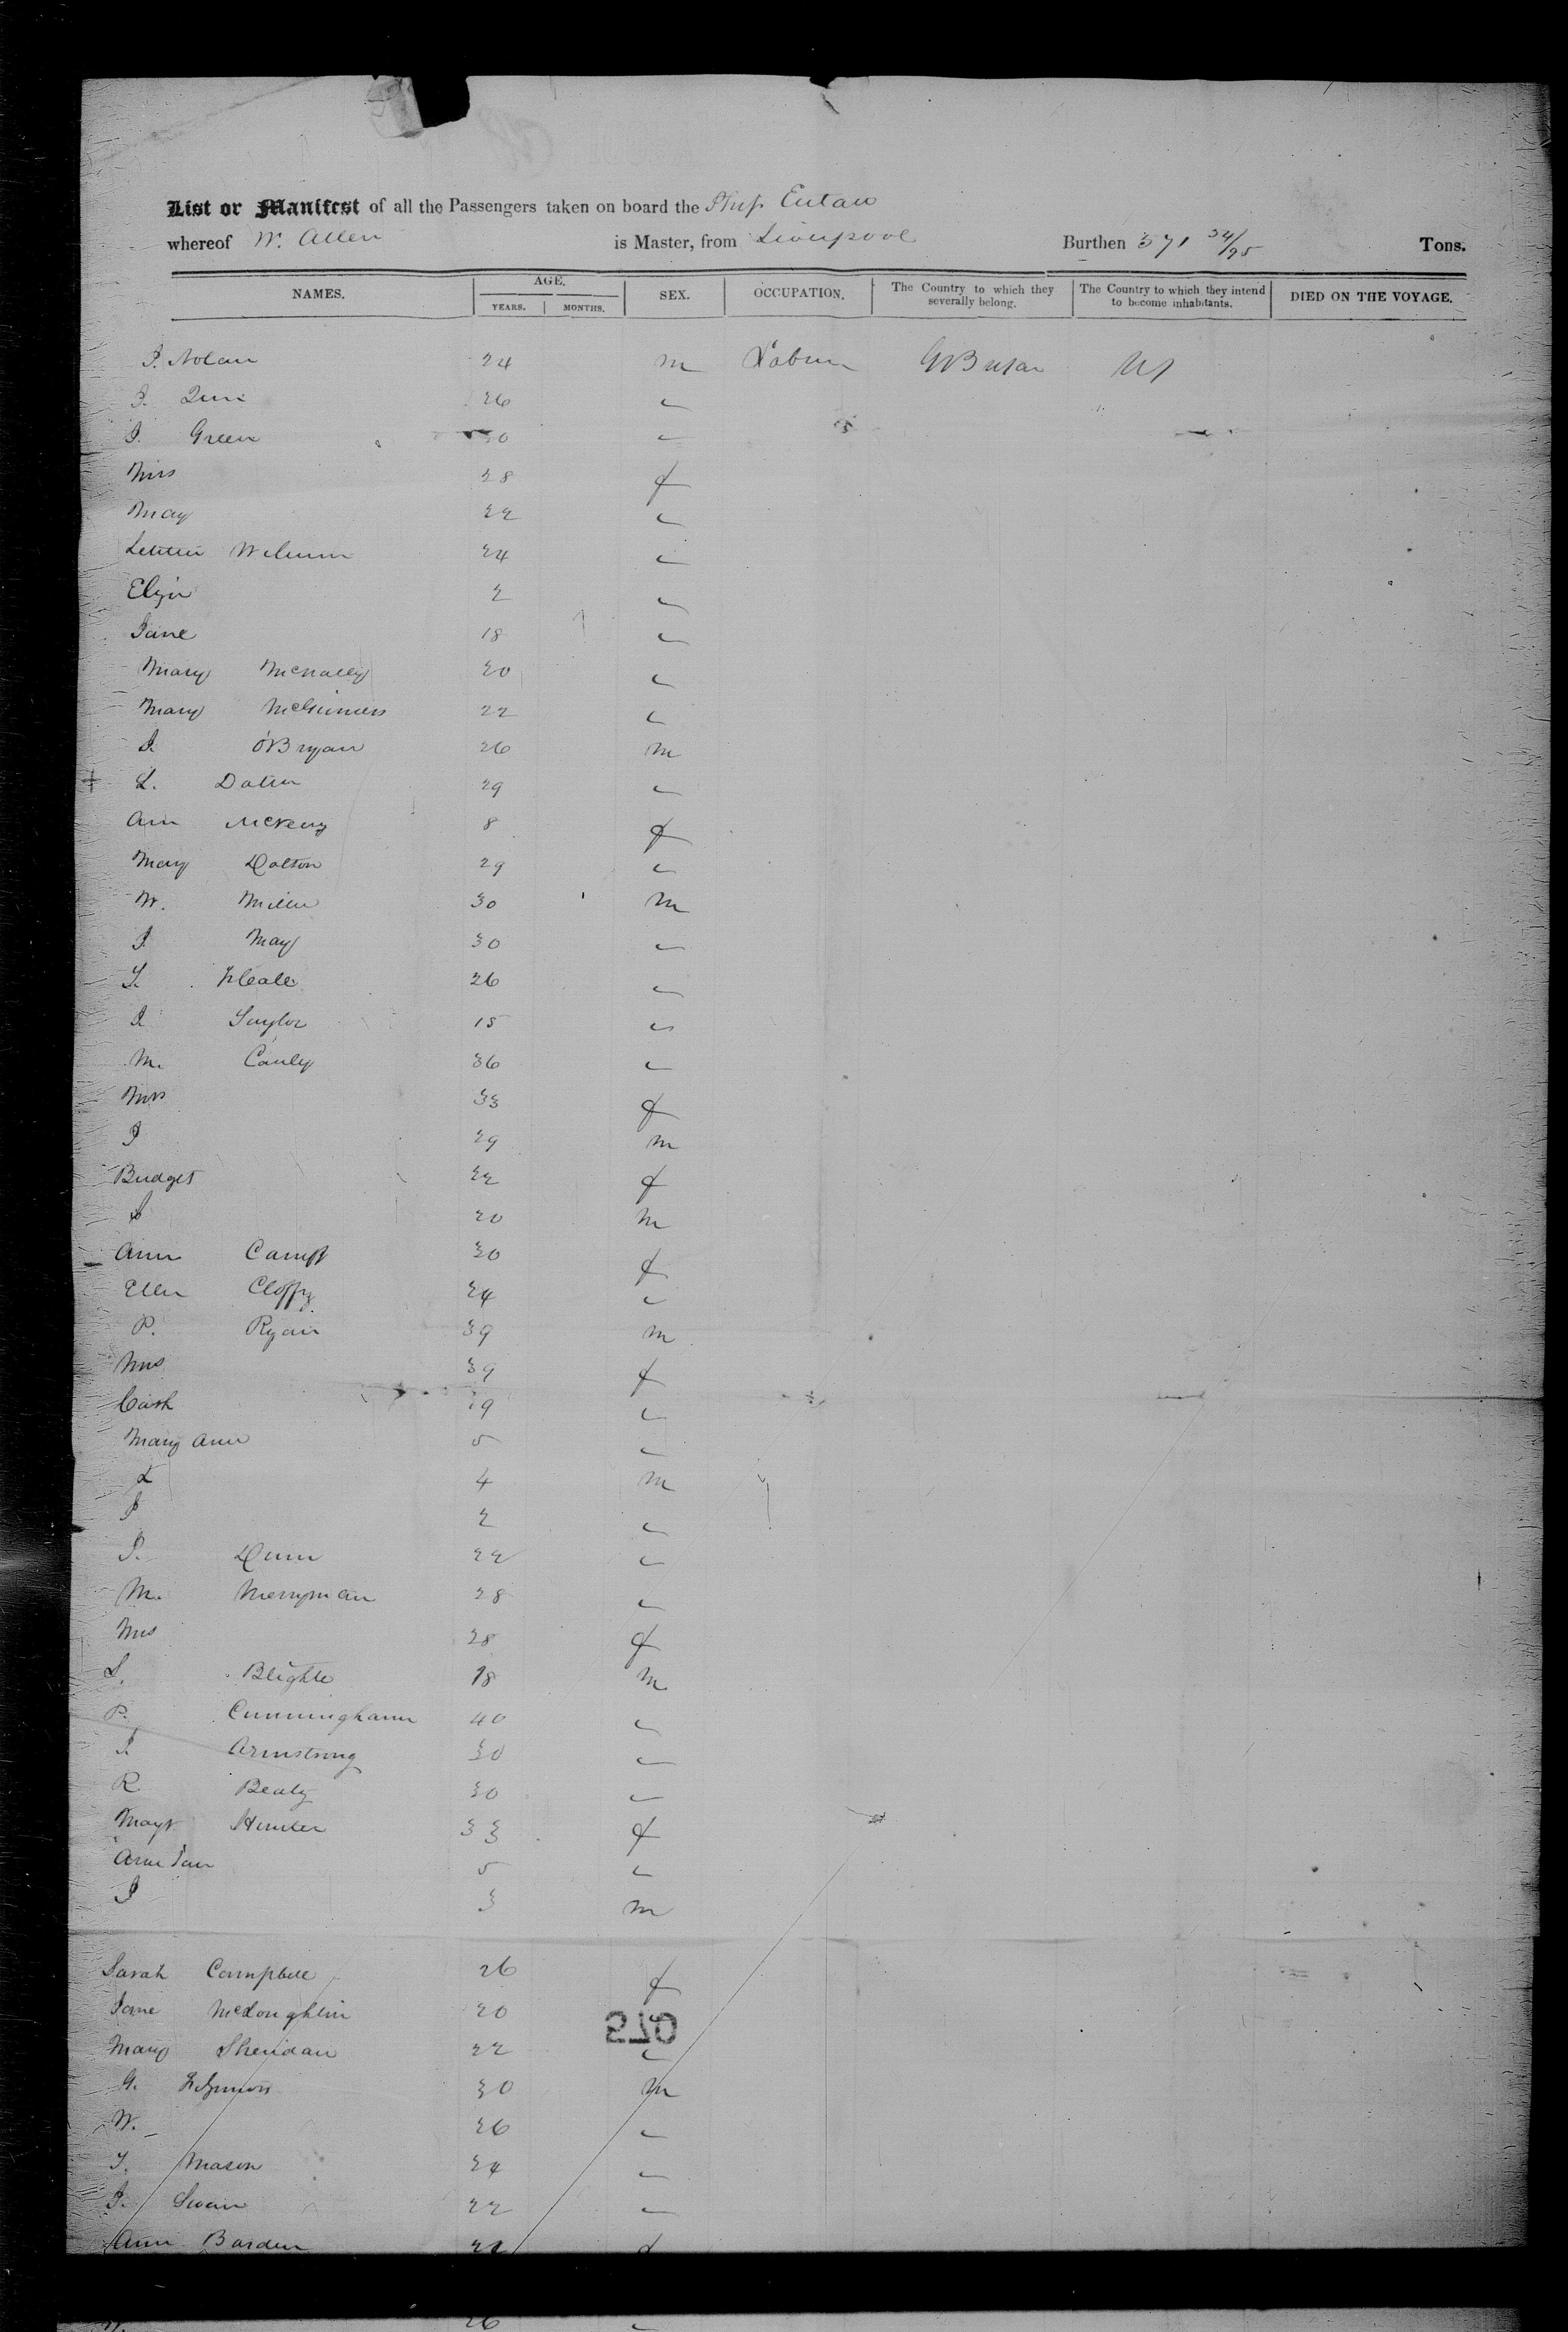 List or Manifest of all the Passengers taken on board the Ship Eutaw
whereof W. Allen is Master, from Liverpool Burthen 571 34/95 Tons.
NAMES. AGE. YEARS. MONTHS. SEX. OCCUPATION. The Country to which they severally belong. The Country to which they intend to become inhabitants. DIED ON THE VOYAGE.
J. Nolan 24 m
J. 26 "
J. Green 30 "
Mrs 28 f
May 22 "
24 "
Eliza 2 "
Jane 18 "
Mary McNally 20 "
Mary McGuiness 22 "
J. O'Bryan 26 m
29 "
Ann 8 f
Mary Dalton 29 "
W. Miller 30 m
J. May 30 "
26 "
J. Taylor 15 "
M. 36 "
Mrs 33 f
J 29 m
Bridget 22 f
20 m
Ann Camp 30 f
Ellen 24 "
P. Ryan 39 m
Mrs 39 f
Cath 19 "
Mary Ann 5 "
4 m
J 2 "
J. Dunn 22 "
M. Merryman 28 "
Mrs 28 f
18 m
P. Cunningham 40 "
J. Armstrong 30 "
R. Beaty 30 "
Magt Hunter 33 f
Ann Jane 5 "
J 3 m
Sarah Campbell 26 f
Jane McLoughlin 20 "
Mary Sheridan 22 "
G. 30 m
W. 26 "
T. Mason 24 "
J. Swain 22 "
Ann Barden 22 f
W. 26 "